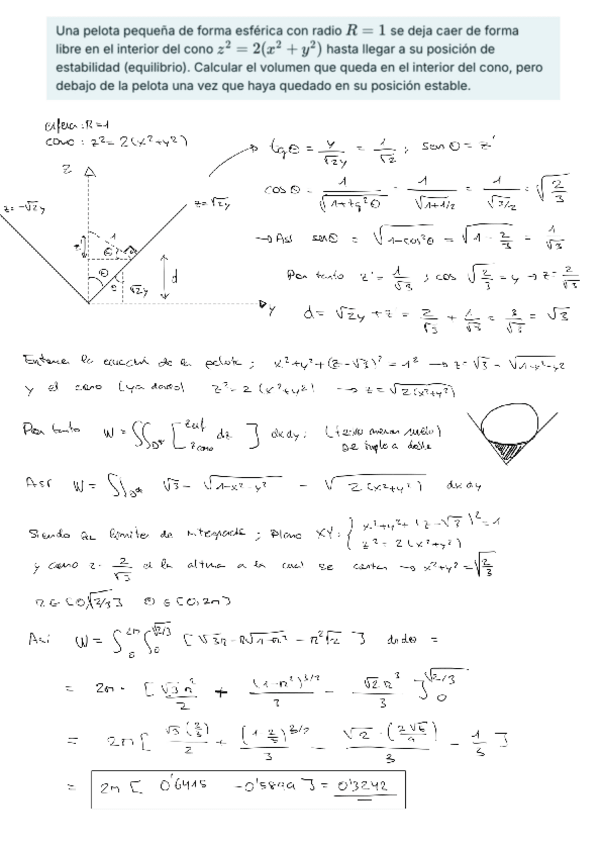 Una pelota pequeña de forma esférica con radio R = 1 se deja caer de forma
libre en el interior del cono z² = 2(x² + y²) hasta llegar a su posición de
estabilidad (equilibrio). Calcular el volumen que queda en el interior del cono, pero
debajo de la pelota una vez que haya quedado en su posición estable.
esfera: R=1
cono: z² = 2(x²+y²)
tgθ = y/√2y = 1/√2 ; senθ = z'
cosθ = 1/√(1+tg²θ) = 1/√(1+1/2) = 1/√(3/2) = √(2/3)
→ Así senθ = √(1-cos²θ) = √(1-2/3) = 1/√3
Por tanto z' = 1/√3 ; cos √(2/3) = y → z = 2/√3
d = √2y + z = 2/√3 + 1/√3 = 3/√3 = √3
z
z=-√2y
z=√2y
1
θ
θ
√2y
d
y
Entonces la ecuación de la pelota; x²+y²+(z-√3)² = 1² → z = √3 - √(1-x²-y²)
y el cono (ya dado) z² = 2(x²+y²) → z = √(2(x²+y²))
Por tanto W = ∬D* [∫ dz] dxdy;
Así W = ∬D* √3 - √(1-x²-y²) - √(2(x²+y²)) dxdy
Siendo los límites de ; plano XY: { x²+y²+(z-√3)² = 1
z² = 2(x²+y²)
y como z = 2/√3 es la altura a la cual se cortan → x²+y² = √(2/3)
r ∈ [0, √(2/3)] θ ∈ [0, 2π]
Así W = ∫ ∫ [√3r - r√(1-r²) - r²√2] drdθ =
= 2π · [√3r²/2 + (1-r²)^3/2/3 - √2r³/3]
= 2π [√3(2/3)/2 + /3 - √2 · /3 - ]
= 2π [0'6415 ] = 0'3242